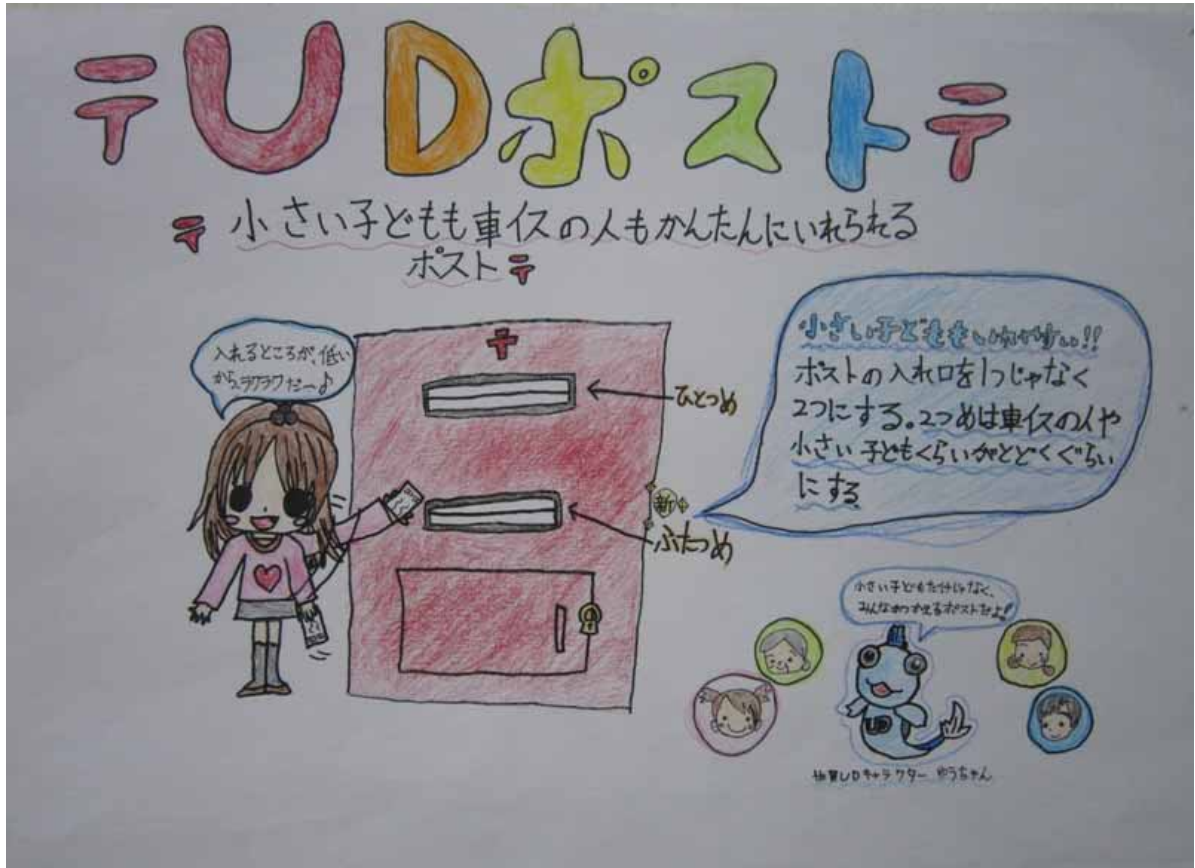 〒UDポスト〒
〒 小さい子どもも車イスの人もかんたんにいれられる
ポスト〒
入れるところが、低い
から、ラクラクだー♪
〒
ひとつめ
新
ふたつめ
小さい子どももいれやすい!!
ポストの入れ口を1つじゃなく
2つにする。2つめは車イスの人や
小さい子どもくらいがとどくぐらい
にする
小さい子どもだけじゃなく、
みんながつかえるポストだよ!
UD
UDキャラクター ゆうちゃん